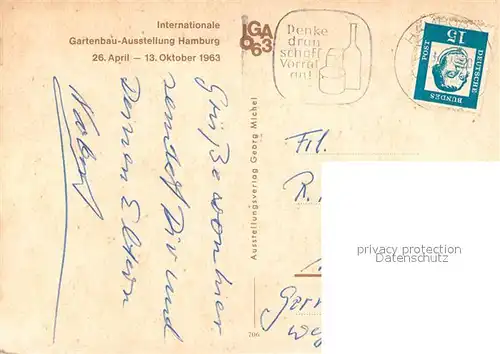 Internationale
Gartenbau-Ausstellung Hamburg
26. April — 13. Oktober 1963
IGA
63
Denke
dran
schaff
Vorrat
an!
15
POST
DEUTSCHE
BUNDES
Grüße von hier
sendet Dir und
Deinen Eltern
Ausstellungsverlag Georg Michel
706
Frl.
R.
privacy protection
Daten-Schutz